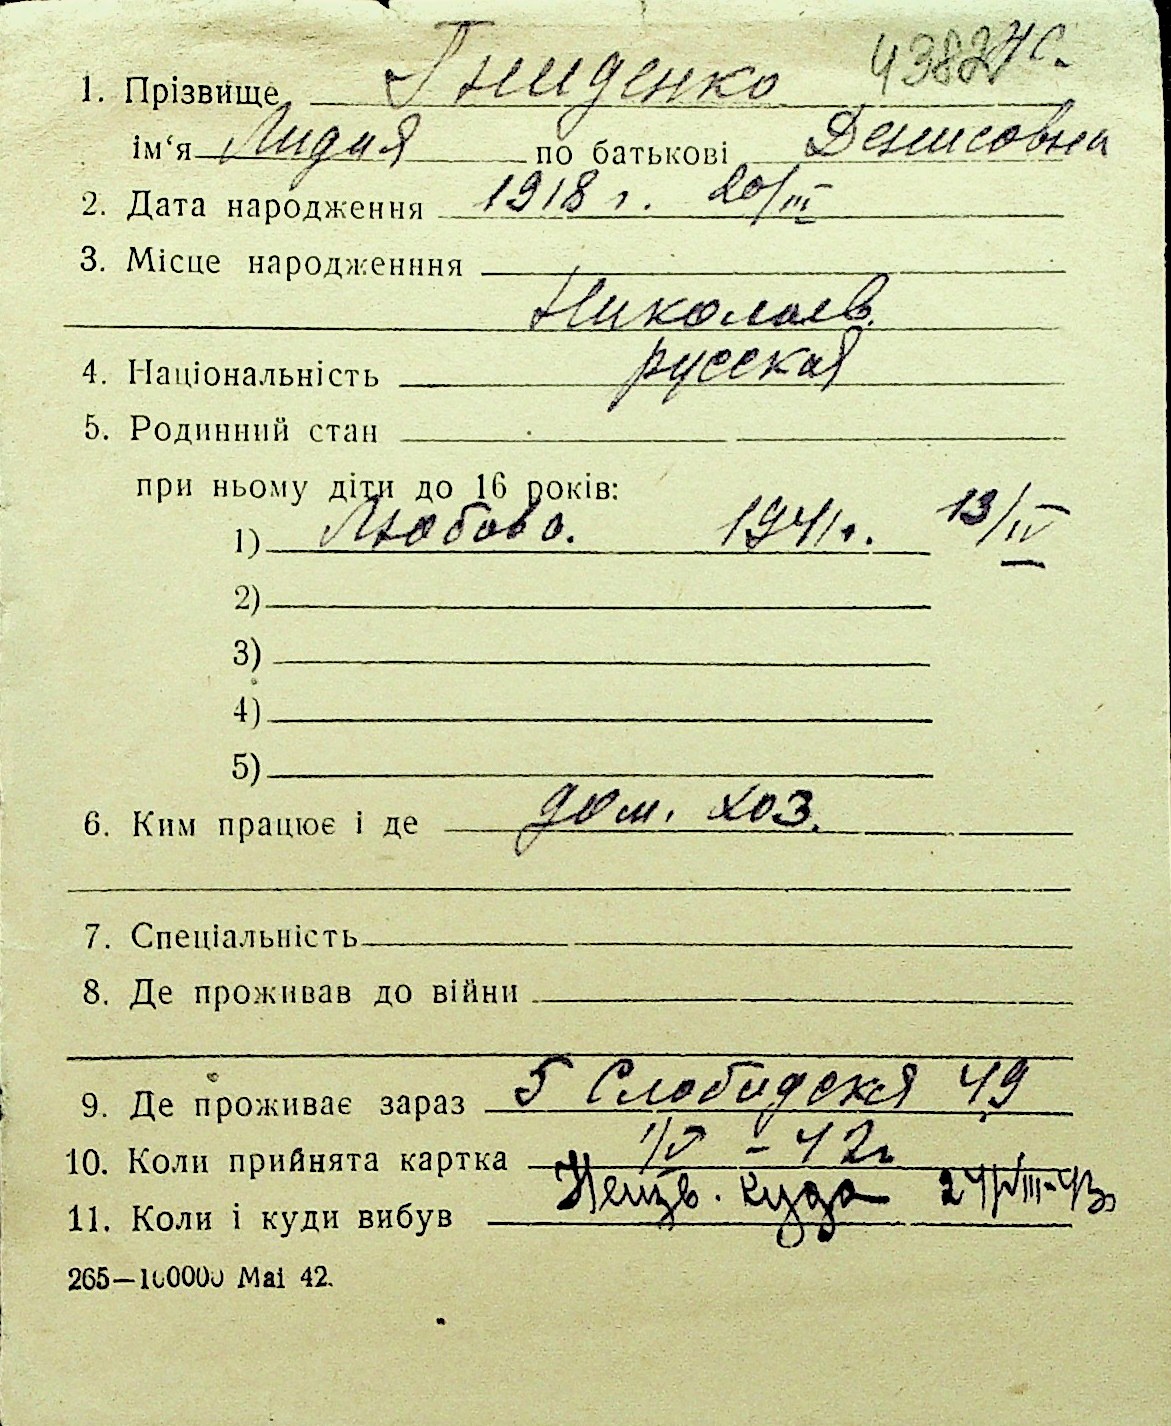 4382 ж.
1. Прізвище Гниденко
ім‘я Лидия по батькові Денисовна
2. Дата народження 1918 г. 20/III
3. Місце народженння
Николаев.
4. Національність русская
5. Родинний стан
при ньому діти до 16 років:
1) Любовь. 1941г. 13/IV
2)
3)
4)
5)
6. Ким працює і де дом. хоз.
7. Спеціальність
8. Де проживав до війни
9. Де проживає зараз 5 Слободская 49
10. Коли прийнята картка 1/V - 42г
11. Коли і куди вибув Неизв. куда 24/VIII-43г
265—100000 Mai 42.